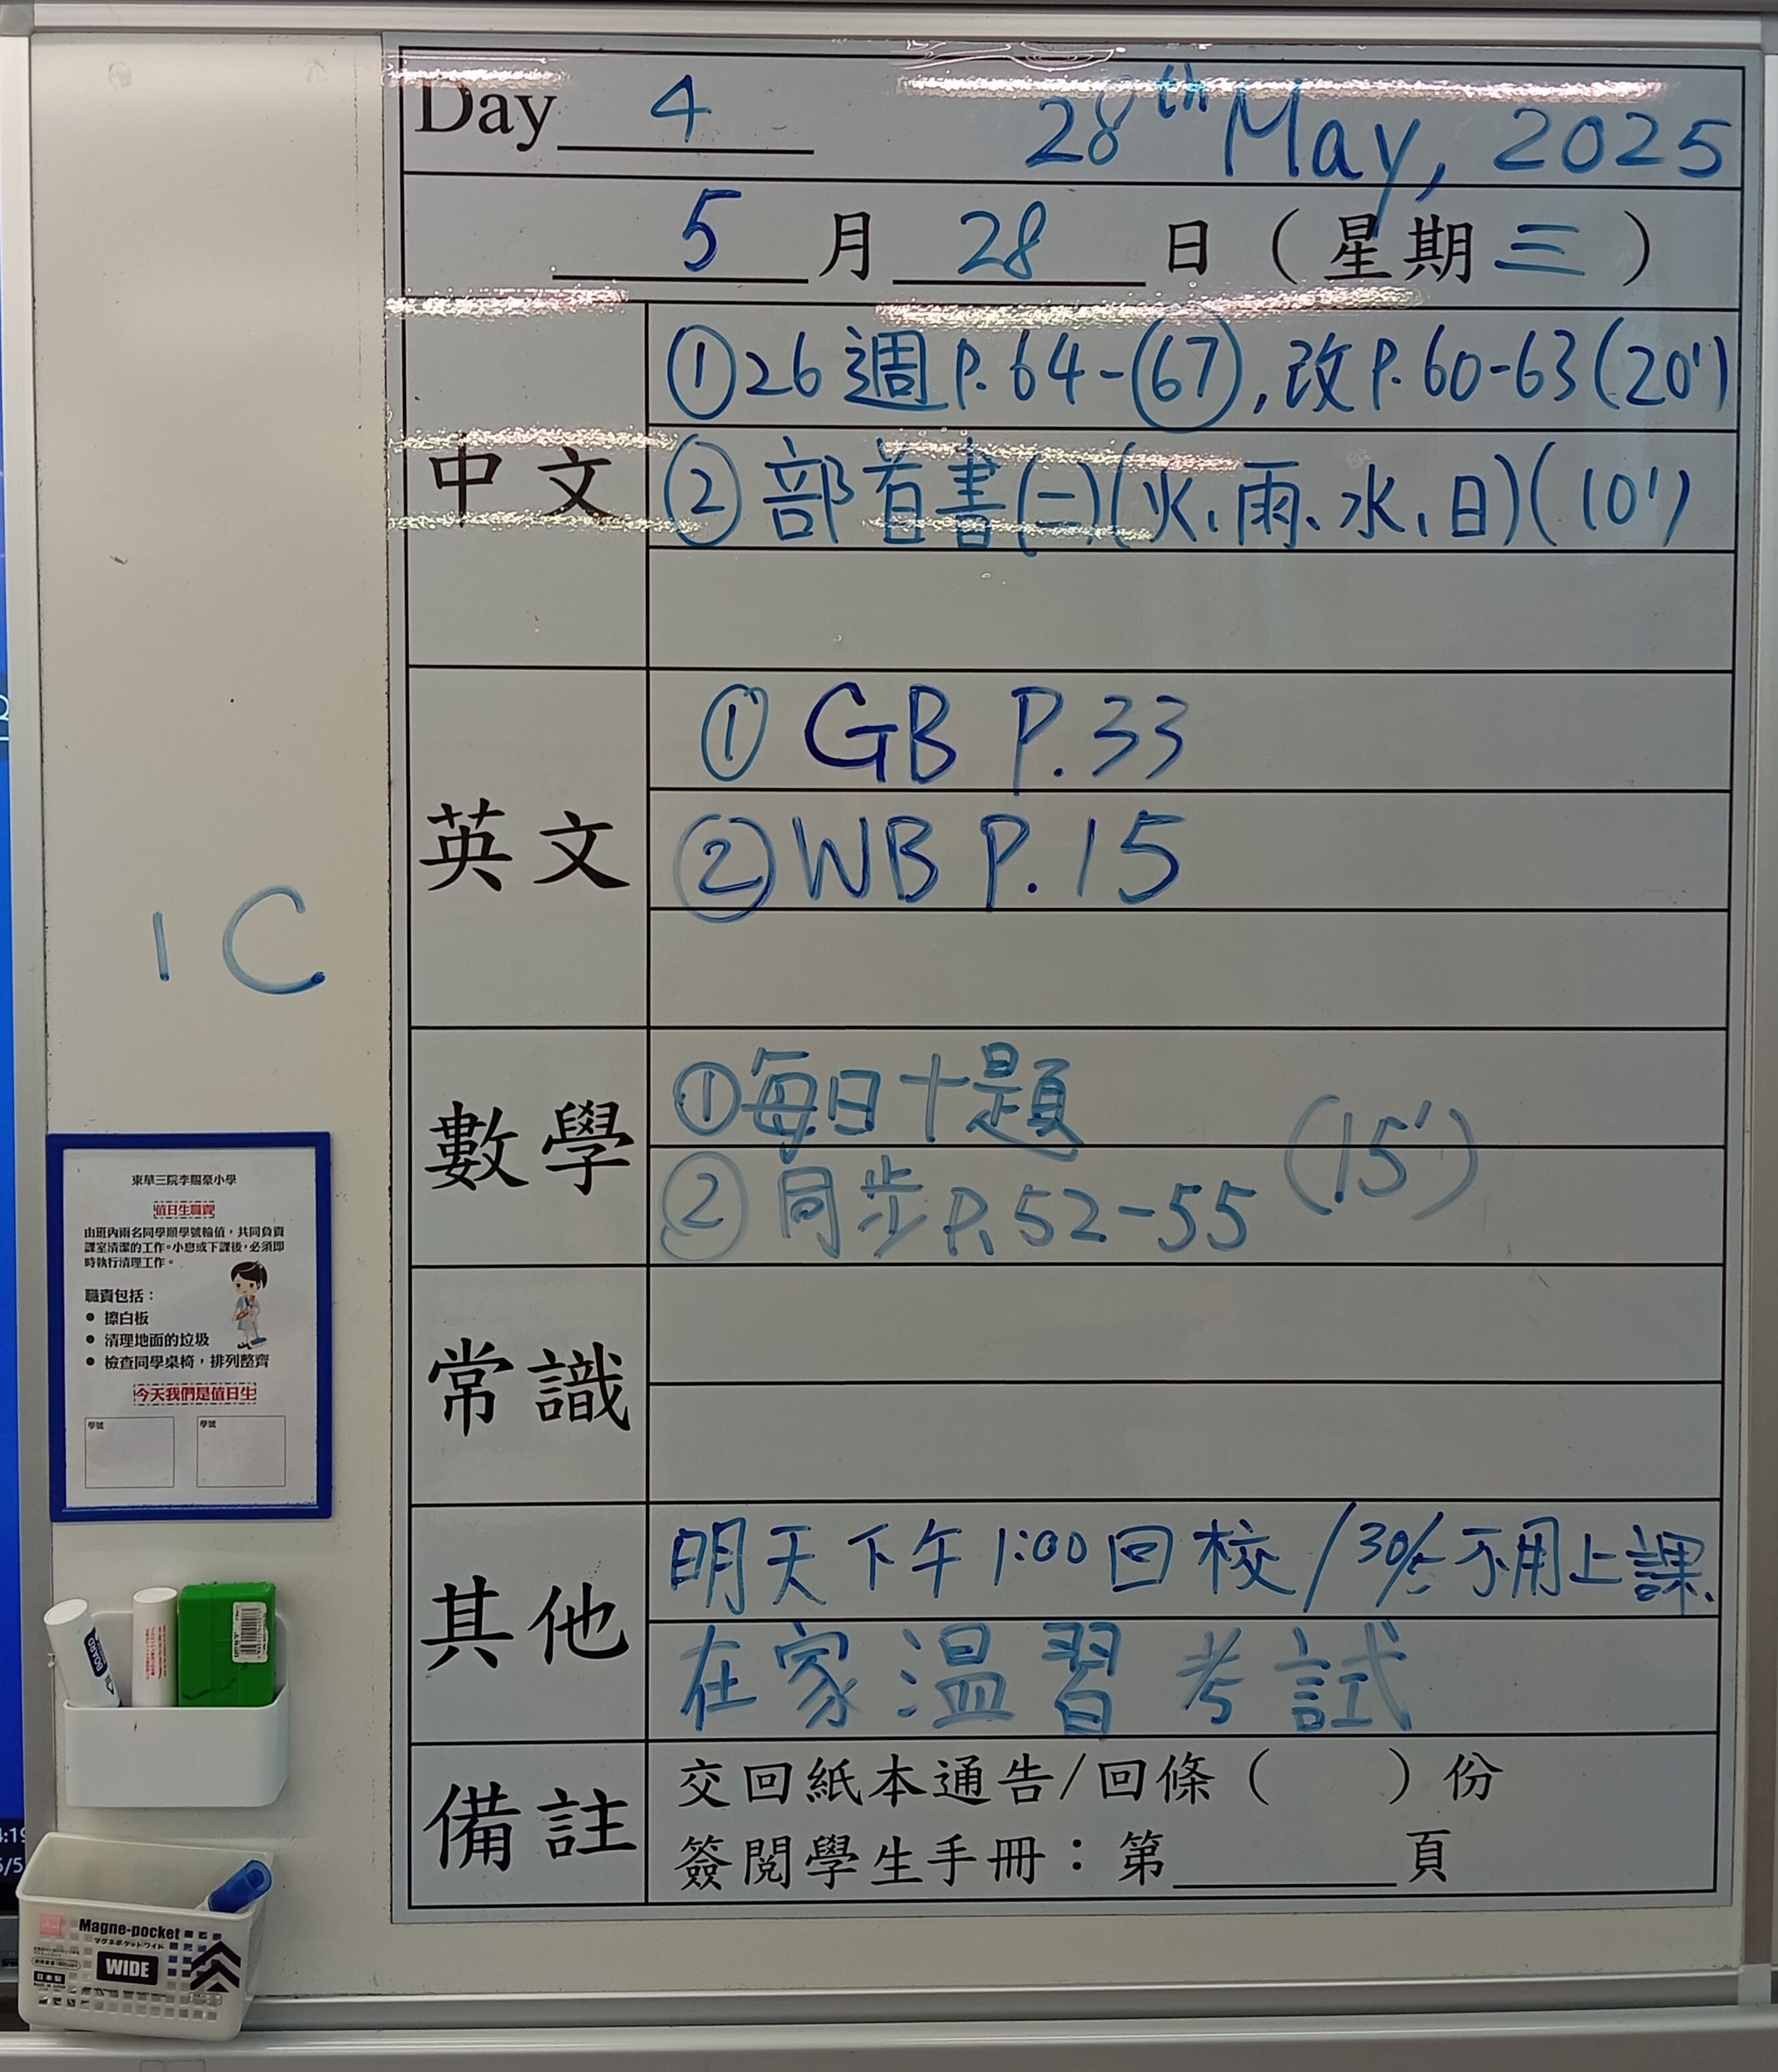 Day 4 28th May, 2025
5 月 28 日（星期三）
中文
①26週P.64-67,改P.60-63(20')
②部首書(二)(火、雨、水、日)(10')
英文
① GB P.33
② WB P.15
數學
①每日十題
②同步P.52-55 (15')
常識
其他
明天下午1:00回校/30/5不用上課、
在家温習考試
備註
交回紙本通告/回條（ ）份
簽閱學生手冊：第______頁
1C
東華三院李賜豪小學
值日生職責
由班內兩名同學順學號輪值，共同負責
課室清潔的工作。小息或下課後，必須即
時執行清理工作。
職責包括：
• 擦白板
• 清理地面的垃圾
• 檢查同學桌椅，排列整齊
今天我們是值日生
學號 學號
BOARD
Magne-pocket
マグネポケットワイド
WIDE
日本製